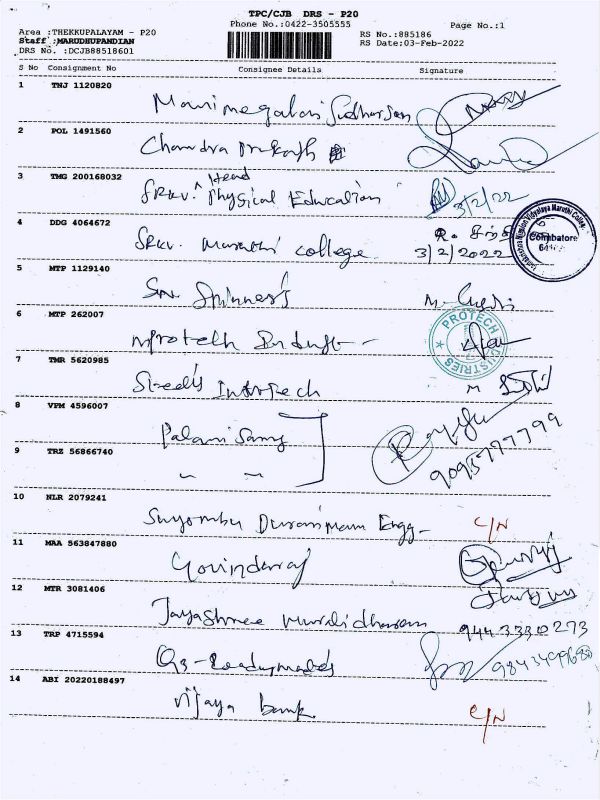 TPC/CJB DRS - P20
Phone No.:0422-3505555
Page No.:1
Area :THEKKUPALAYAM - P20
Staff :MARUDHUPANDIAN
DRS No. :DCJB88518601
RS No.:885186
RS Date:03-Feb-2022
S No Consignment No Consignee Details Signature
1 TNJ 1120820
Manimegalai Sudharsan
2 POL 1491560
Chandra Prakash
3 TMG 200168032
SRKV. Head Physical Education 3/2/22
4 DDG 4064672
SRKV. Maruthi College 3/2/2022
Coimbatore
5 MTP 1129140
Spinners
6 MTP 262007
Protech
PROTECH INDUSTRIES
7 TMR 5620985
Infotech
8 VPM 4596007
Palani Samy
9 TRZ 56866740
9095777799
10 NLR 2079241
Engg- C/N
11 MAA 563847880
Govindaraj
12 MTR 3081406
Jayashree Muralidharan 9443330273
13 TRP 4715594
14 ABI 20220188497
Vijaya bank C/N